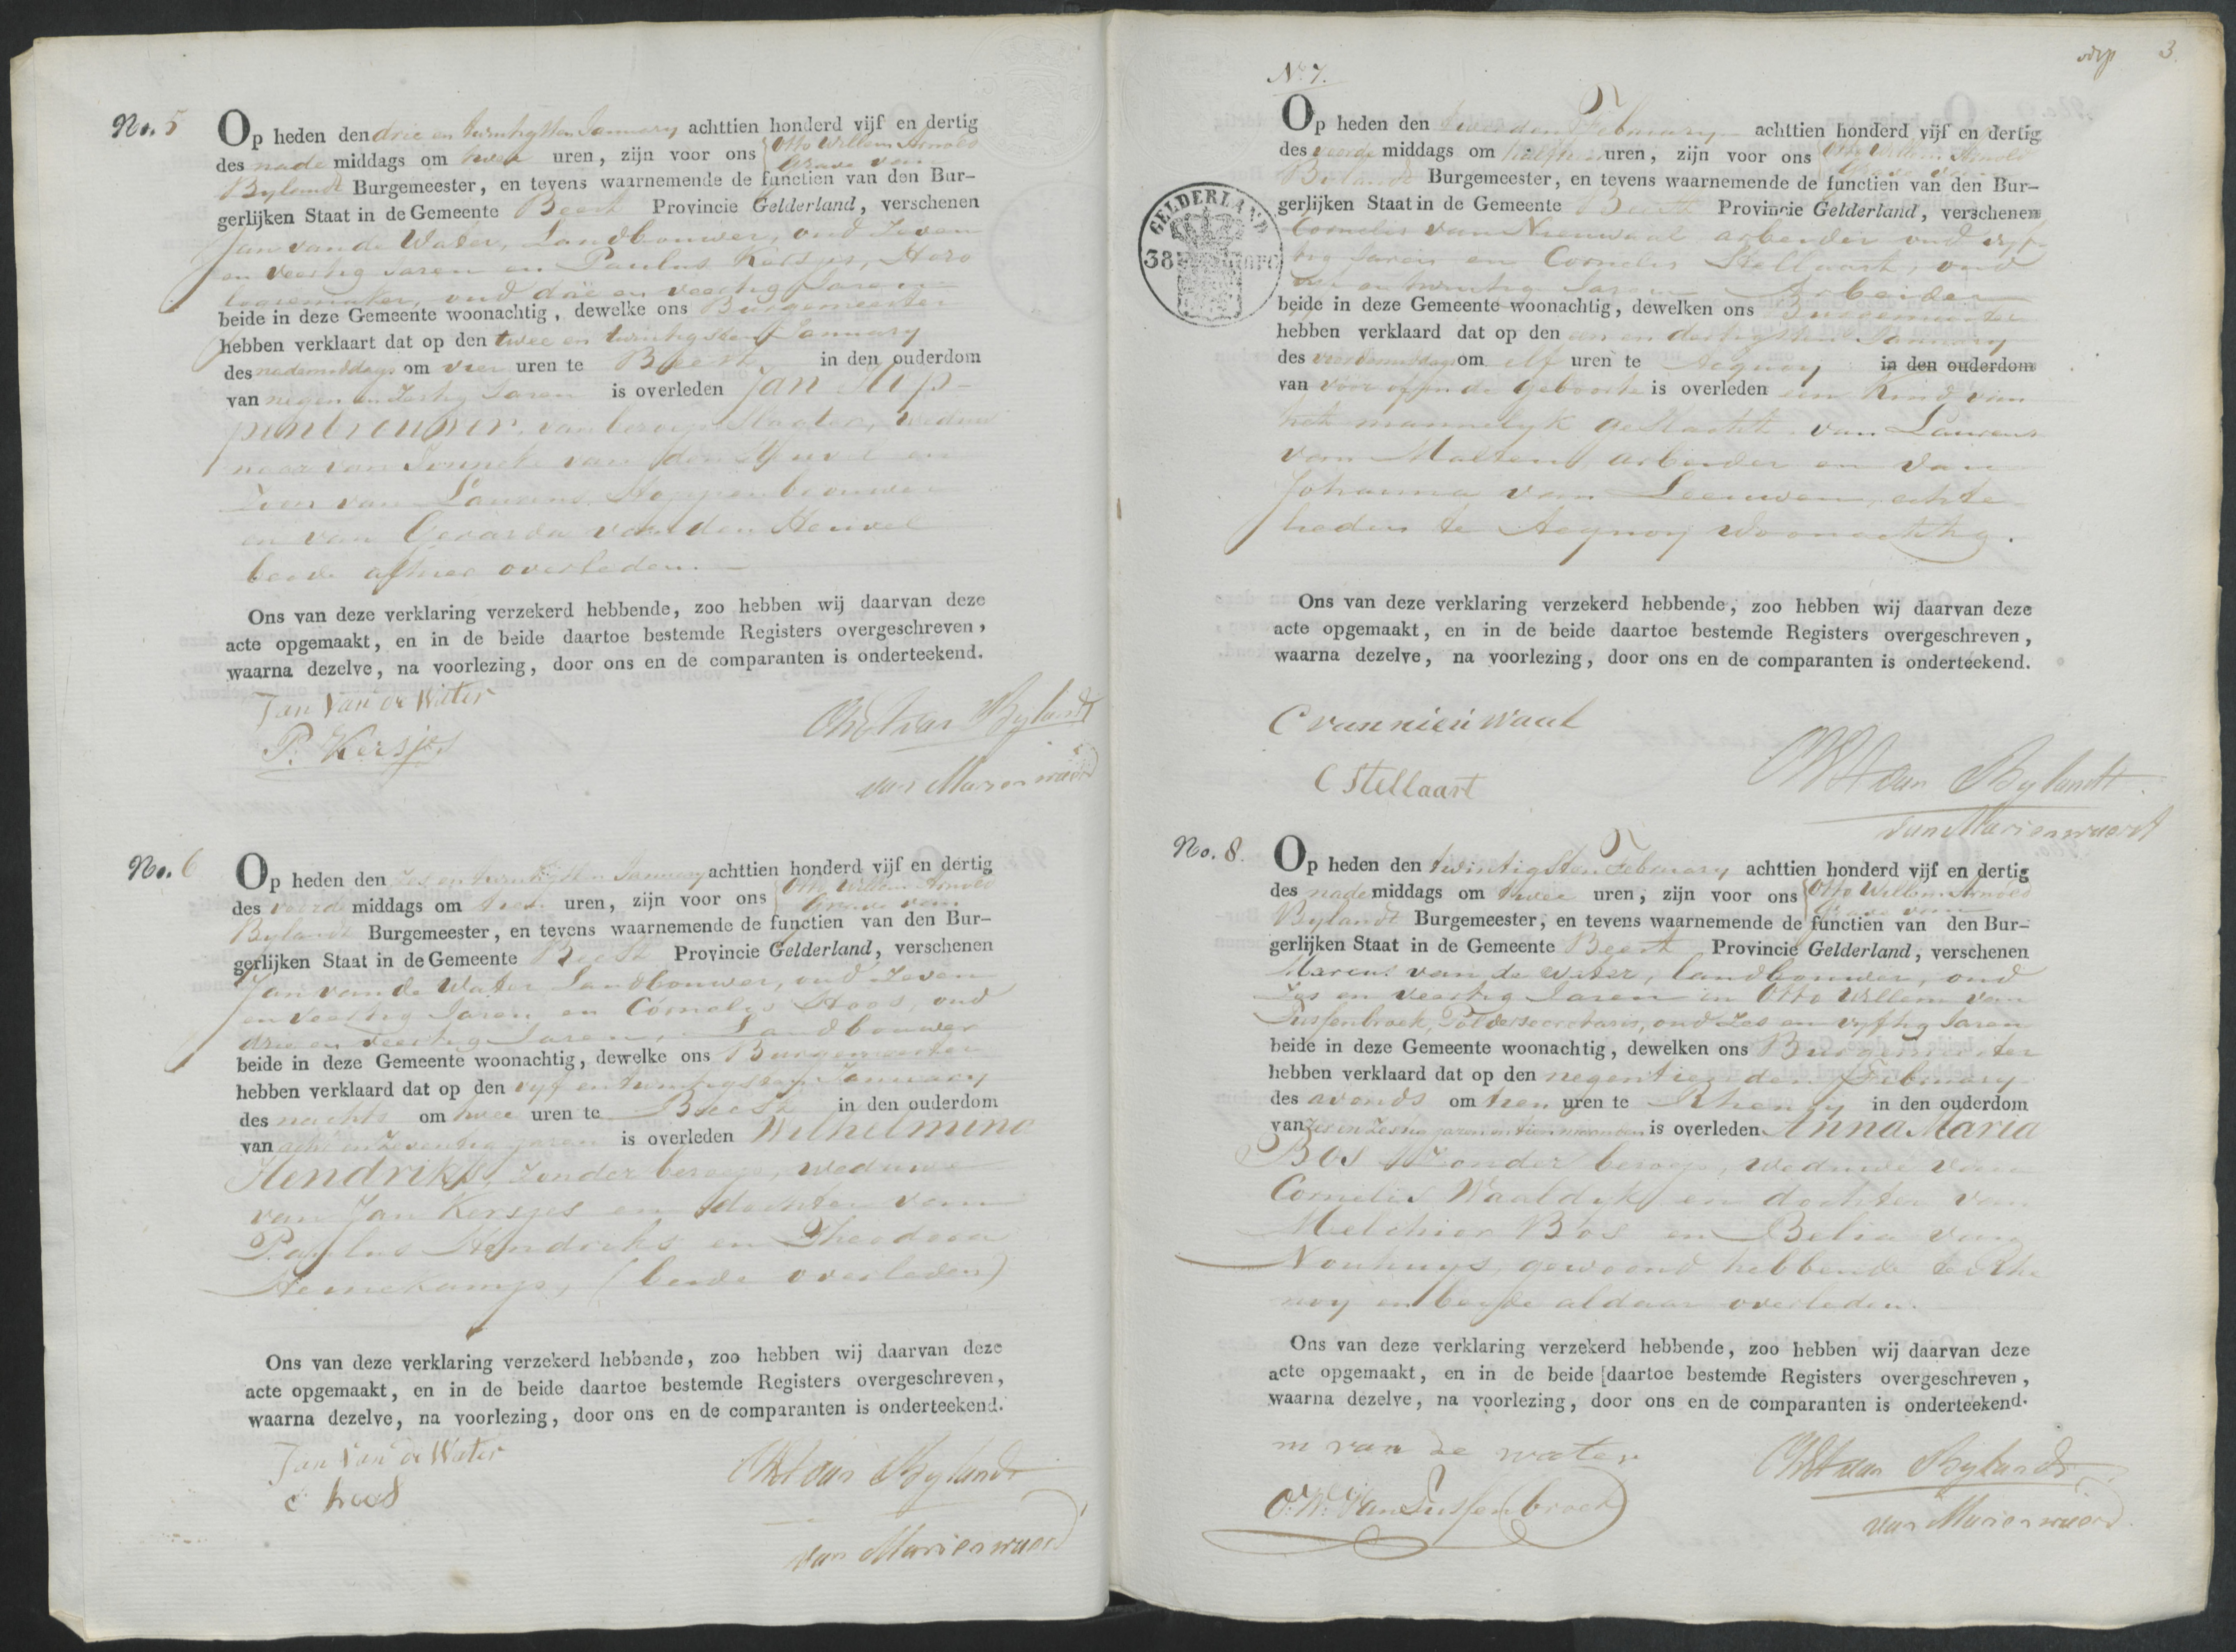 No. 5
Op heden den drie en twintigsten January achttien honderd vijf en dertig
des nade middags om twee uren, zijn voor ons Otto Willem Arnold
Grave van
Bylandt Burgemeester, en tevens waarnemende de functien van den Bur-
gerlijken Staat in de Gemeente Beest Provincie Gelderland, verschenen
Jan van de Water, Landbouwer, oud Zeven
en veertig Jaren en Paulus Kersjes, Horo
logiemaker, oud drie en veertig Jaren
beide in deze Gemeente woonachtig, dewelke ons Burgemeester
hebben verklaart dat op den twee en twintigsten January
des nademiddags om vier uren te Beest in den ouderdom
van negen en Zestig Jaren is overleden Jan Stop-
penbrouwer, van beroep Slagter, weduw
naar van Jenneke van den Heuvel en
Zoon van Laurens Stoppenbrouwer
en van Gerarda van den Heuvel
beide alhier overleden.
Ons van deze verklaring verzekerd hebbende, zoo hebben wij daarvan deze
acte opgemaakt, en in de beide daartoe bestemde Registers overgeschreven,
waarna dezelve, na voorlezing, door ons en de comparanten is onderteekend.
Jan Van de Water
P. Kersjes
OWA van Bylandt
van Marienwaerd
No. 6
Op heden den Zes en twintigsten January achttien honderd vijf en dertig
des voorde middags om tien uren, zijn voor ons Otto Willem Arnold
Grave van
Bylandt Burgemeester, en tevens waarnemende de functien van den Bur-
gerlijken Staat in de Gemeente Beest Provincie Gelderland, verschenen
Jan van de Water Landbouwer, oud Zeven
en veertig Jaren en Cornelis Hoos, oud
drie en veertig Jaren, Landbouwer
beide in deze Gemeente woonachtig, dewelke ons Burgemeester
hebben verklaard dat op den vyf en twintigsten January
des nachts om twee uren te Beest in den ouderdom
van acht en Zeventig jaren is overleden Wilhelmina
Hendriks, Zonder beroep, weduwe
van Jan Kersjes en dochter van
Paulus Hendriks en Theodora
Heinekamp, (beide overleden)
Ons van deze verklaring verzekerd hebbende, zoo hebben wij daarvan deze
acte opgemaakt, en in de beide daartoe bestemde Registers overgeschreven,
waarna dezelve, na voorlezing, door ons en de comparanten is onderteekend.
Jan Van de Water
C hoos
OWA van Bylandt
van Marienwaerd
3
No 7.
Op heden den tweeden February achttien honderd vijf en dertig
des voorde middags om half tien uren, zijn voor ons Otto Willem Arnold
Grave van
Bylandt Burgemeester, en tevens waarnemende de functien van den Bur-
gerlijken Staat in de Gemeente Beest Provincie Gelderland, verschenen
Cornelis van Nieuwaal arbeider oud vyf-
tig Jaren en Cornelis Stellaart, oud
en twintig Jaren Arbeider
beide in deze Gemeente woonachtig, dewelken ons Burgemeester
hebben verklaard dat op den een en dertigsten January
des voordemiddags om elf uren te Acquoy in den ouderdom
van voor of in de geboorte is overleden een Kind van
het mannelyk geslacht van Laurens
van Maeren arbeider en van
Johanna van Leeuwen, echte
lieden te Acquoy woonachtig.
GELDERLAND
38
Ons van deze verklaring verzekerd hebbende, zoo hebben wij daarvan deze
acte opgemaakt, en in de beide daartoe bestemde Registers overgeschreven,
waarna dezelve, na voorlezing, door ons en de comparanten is onderteekend.
C van nieu waal
C Stellaart
OWA van Bylandt
van Marienwaerd
No. 8.
Op heden den twintigsten February achttien honderd vijf en dertig
des nade middags om twee uren, zijn voor ons Otto Willem Arnold
Grave van
Bylandt Burgemeester, en tevens waarnemende de functien van den Bur-
gerlijken Staat in de Gemeente Beest Provincie Gelderland, verschenen
Marcus van de Water, landbouwer, oud
Zes en veertig Jaren en Otto Willem van
Tussenbroek, Poldersecretaris, oud Zes en vyftig Jaren
beide in deze Gemeente woonachtig, dewelken ons Burgemeester
hebben verklaard dat op den negentienden February
des avonds om tien uren te Rhenoy in den ouderdom
van Zes en Zestig jaren en tien maanden is overleden Anna Maria
Bos Zonder beroep, weduwe van
Cornelis Waaldyk en dochter van
Melchior Bos en Belia van
Nouhuys, gewoond hebbende te Rhe
noy en beide aldaar overleden.
Ons van deze verklaring verzekerd hebbende, zoo hebben wij daarvan deze
acte opgemaakt, en in de beide [daartoe bestemde Registers overgeschreven,
waarna dezelve, na voorlezing, door ons en de comparanten is onderteekend.
m van de water
O.W. Van Tussenbroek
OWA van Bylandt
van Marienwaerd